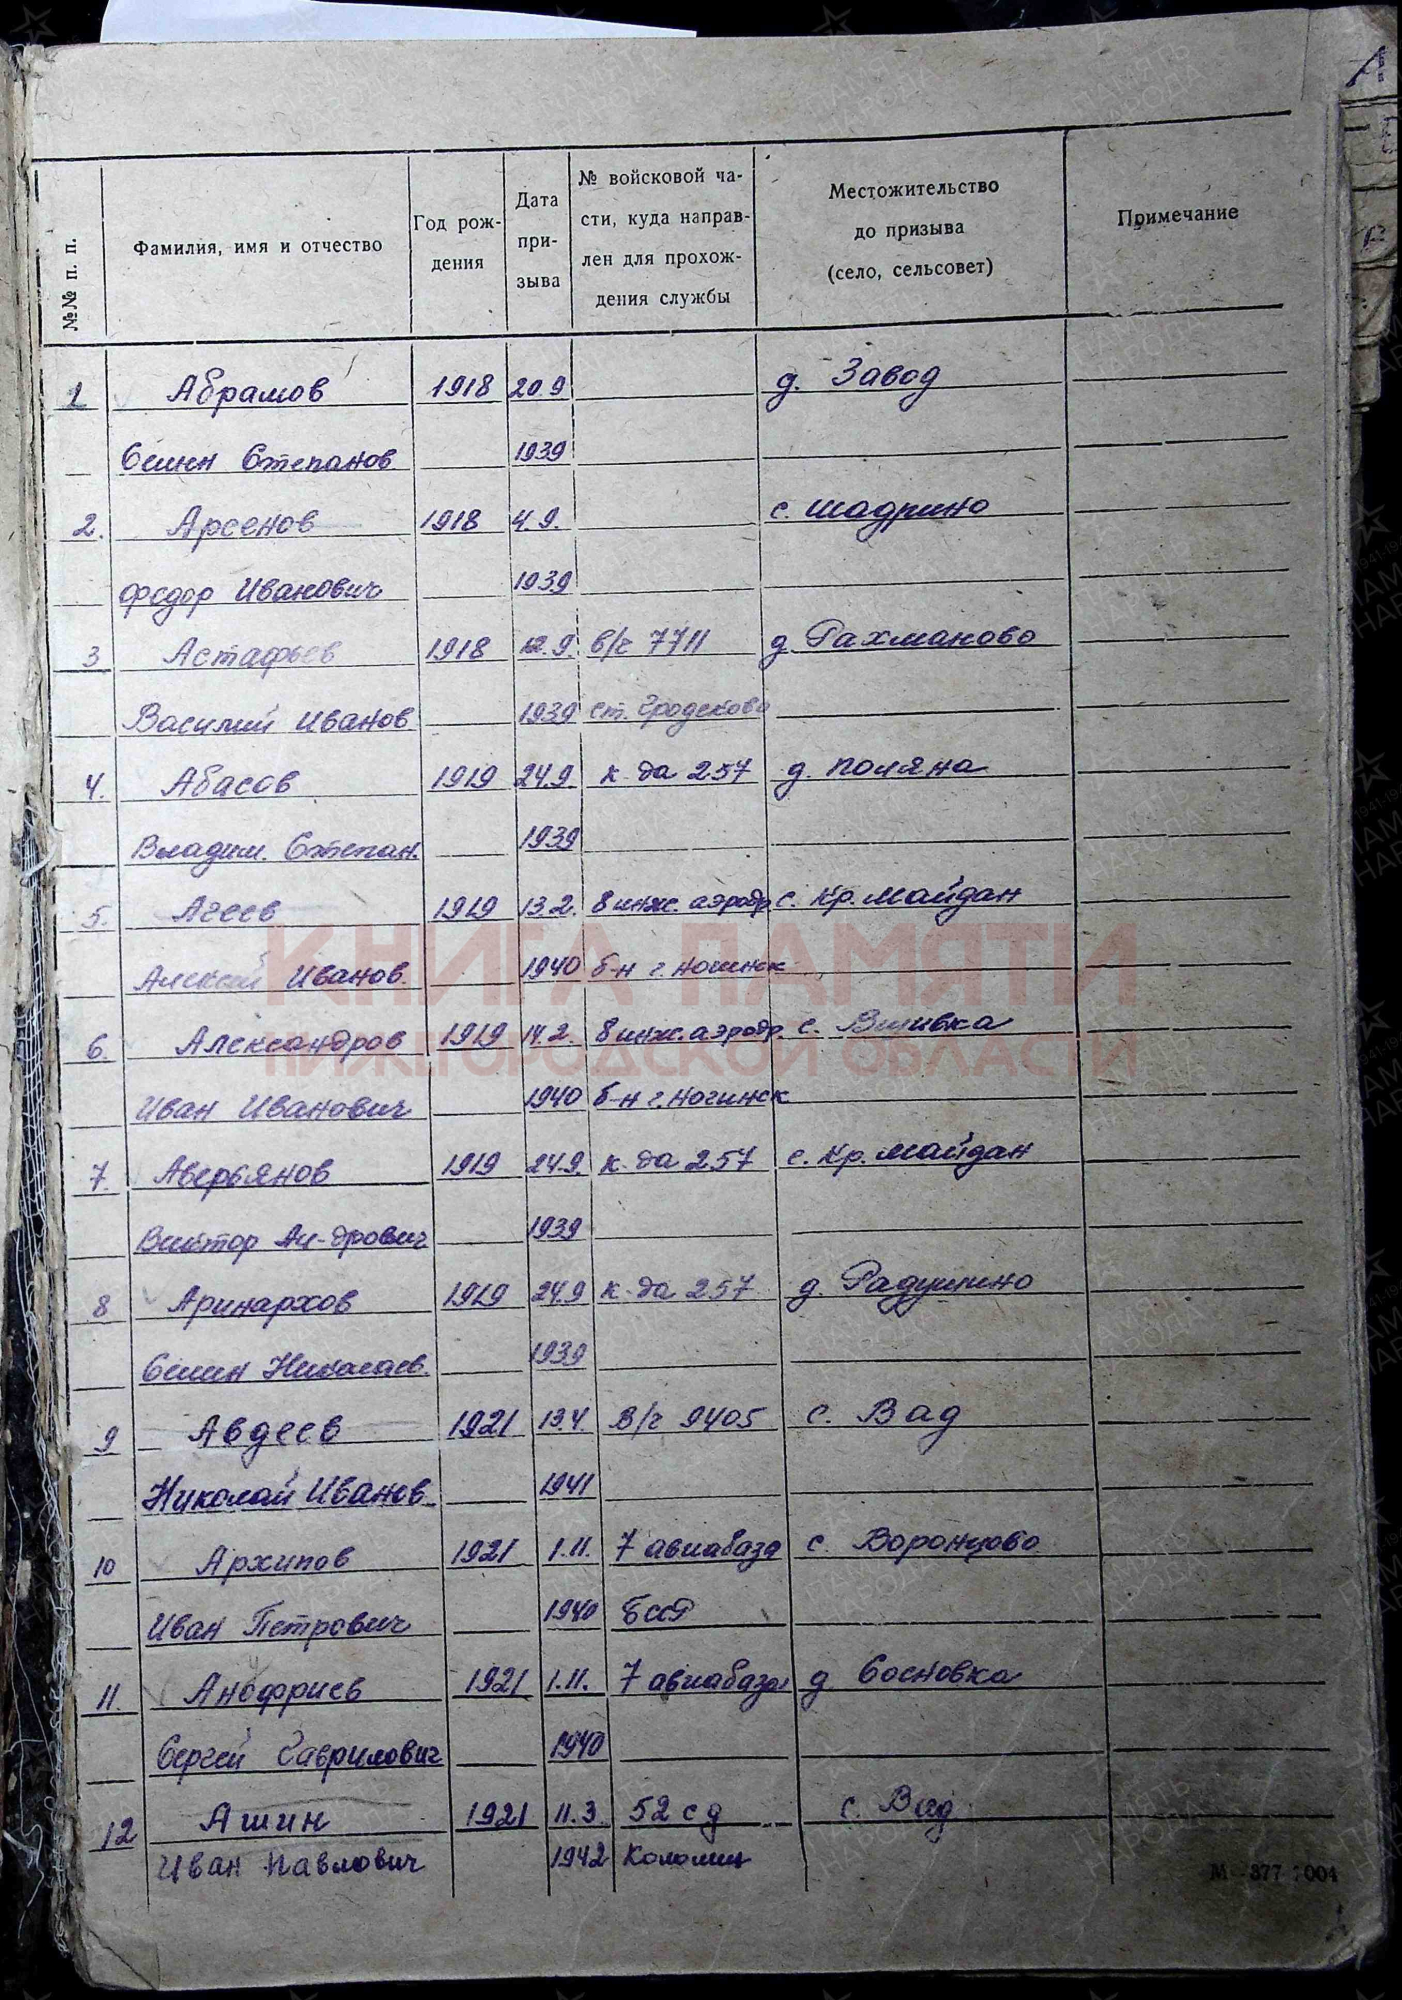 А
№№ п. п.
Фамилия, имя и отчество
Год рож-
дения
Дата
при-
зыва
№ войсковой ча-
сти, куда направ-
лен для прохож-
дения службы
Местожительство
до призыва
(село, сельсовет)
Примечание
1 Абрамов 1918 20.9 д. Завод
Семен Степанов 1939
2. Арсенов 1918 4.9. с. Шадрино
Федор Иванович 1939
3 Астафьев 1918 12.9. в/ч 7711 д. Рахманово
Василий Иванов 1939 ст. Гродеково
4. Абасов 1919 24.9 к-да 257 д. Поляна
Владим. Степан. 1939
5. Агеев 1919 13.2. 8 инж. аэродр. с. Кр. Майдан
Алексей Иванов. 1940 б-н г. Ногинск
6. Александров 1919 14.2. 8 инж. аэродр. с.
Иван Иванович 1940 б-н г. Ногинск
7. Аверьянов 1919 24.9. к-да 257 с. Кр. Майдан
Виктор 1939
8 Аринархов 1919 24.9 к-да 257 д. Радушино
Семен Николаев. 1939
9 Авдеев 1921 13.4. В/ч 9405 с. Вад
Николай Иванов. 1941
10 Архипов 1921 1.11. 7 авиабаза с. Воронцово
Иван Петрович 1940 БССР
11. Анофриев 1921 1.11. 7 авиабаза д Сосновка
Сергей Гаврилович 1940
12 Ашин 1921 11.3. 52 сд с. Вад
Иван Павлович 1942 Коломна
КНИГА ПАМЯТИ
НИЖЕГОРОДСКОЙ ОБЛАСТИ
ПАМЯТЬ
НАРОДА